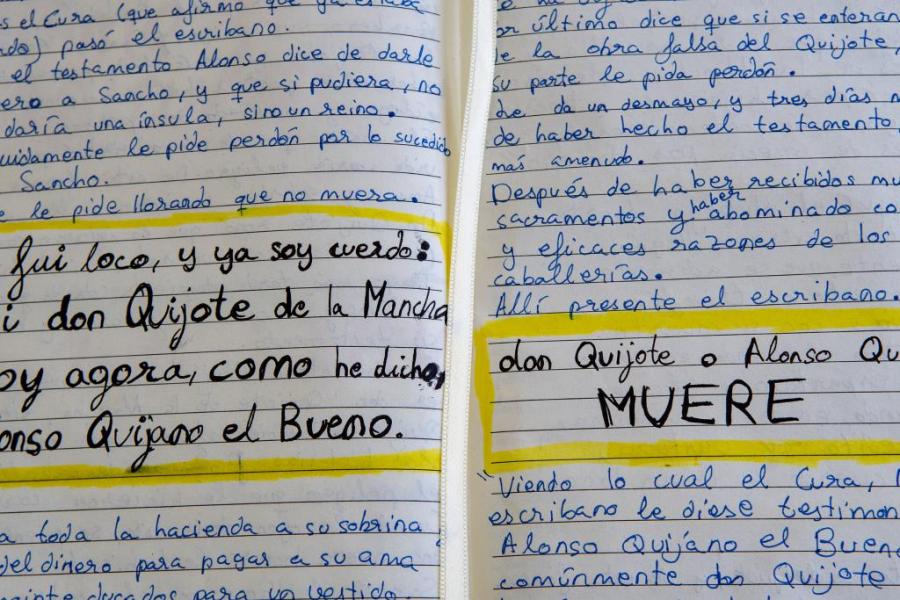 s el Cura (que afirmo que ya estaba
pasó el escribano.
el testamento Alonso dice de darle
a Sancho, y que si pudiera, no
daría una ínsula, sino un reino.
uidamente le pide perdón por lo sucedido
Sancho.
e le pide llorando que no muera.
fui loco, y ya soy cuerdo:
i don Quijote de la Mancha
oy agora, como he dicho,
onso Quijano el Bueno.
a toda la hacienda a su sobrina
del dinero para pagar a su ama
ducados para un vestido.
or último dice que si se enteran
e la obra falsa del Quijote,
su parte le pida perdón.
he da un desmayo, y tres días
de haber hecho el testamento,
más amenudo.
Después de haber recibidos mu
sacramentos y haber abominado co
y eficaces razones de los
caballerías.
Allí presente el escribano.
don Quijote o Alonso Qu
MUERE
"Viendo lo cual el Cura,
escribano le diese testimon
Alonso Quijano el Bueno
comúnmente don Quijote